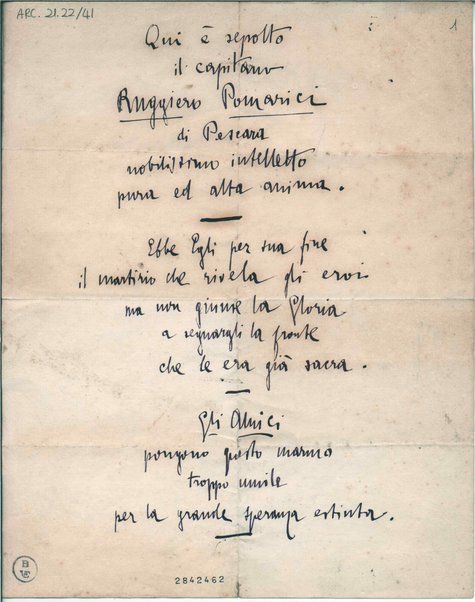 ARC. 21.22/41
1
Qui è sepolto
il capitano
Ruggiero Pomarici
di Pescara
nobilissimo intelletto
pura ed alta anima.
Ebbe Egli per sua fine
il martirio che rivela gli eroi
ma non giunse la Gloria
a segnargli la fronte
che le era già sacra.
Gli Amici
pongono questo marmo
troppo umile
per la grande speranza estinta.
2842462